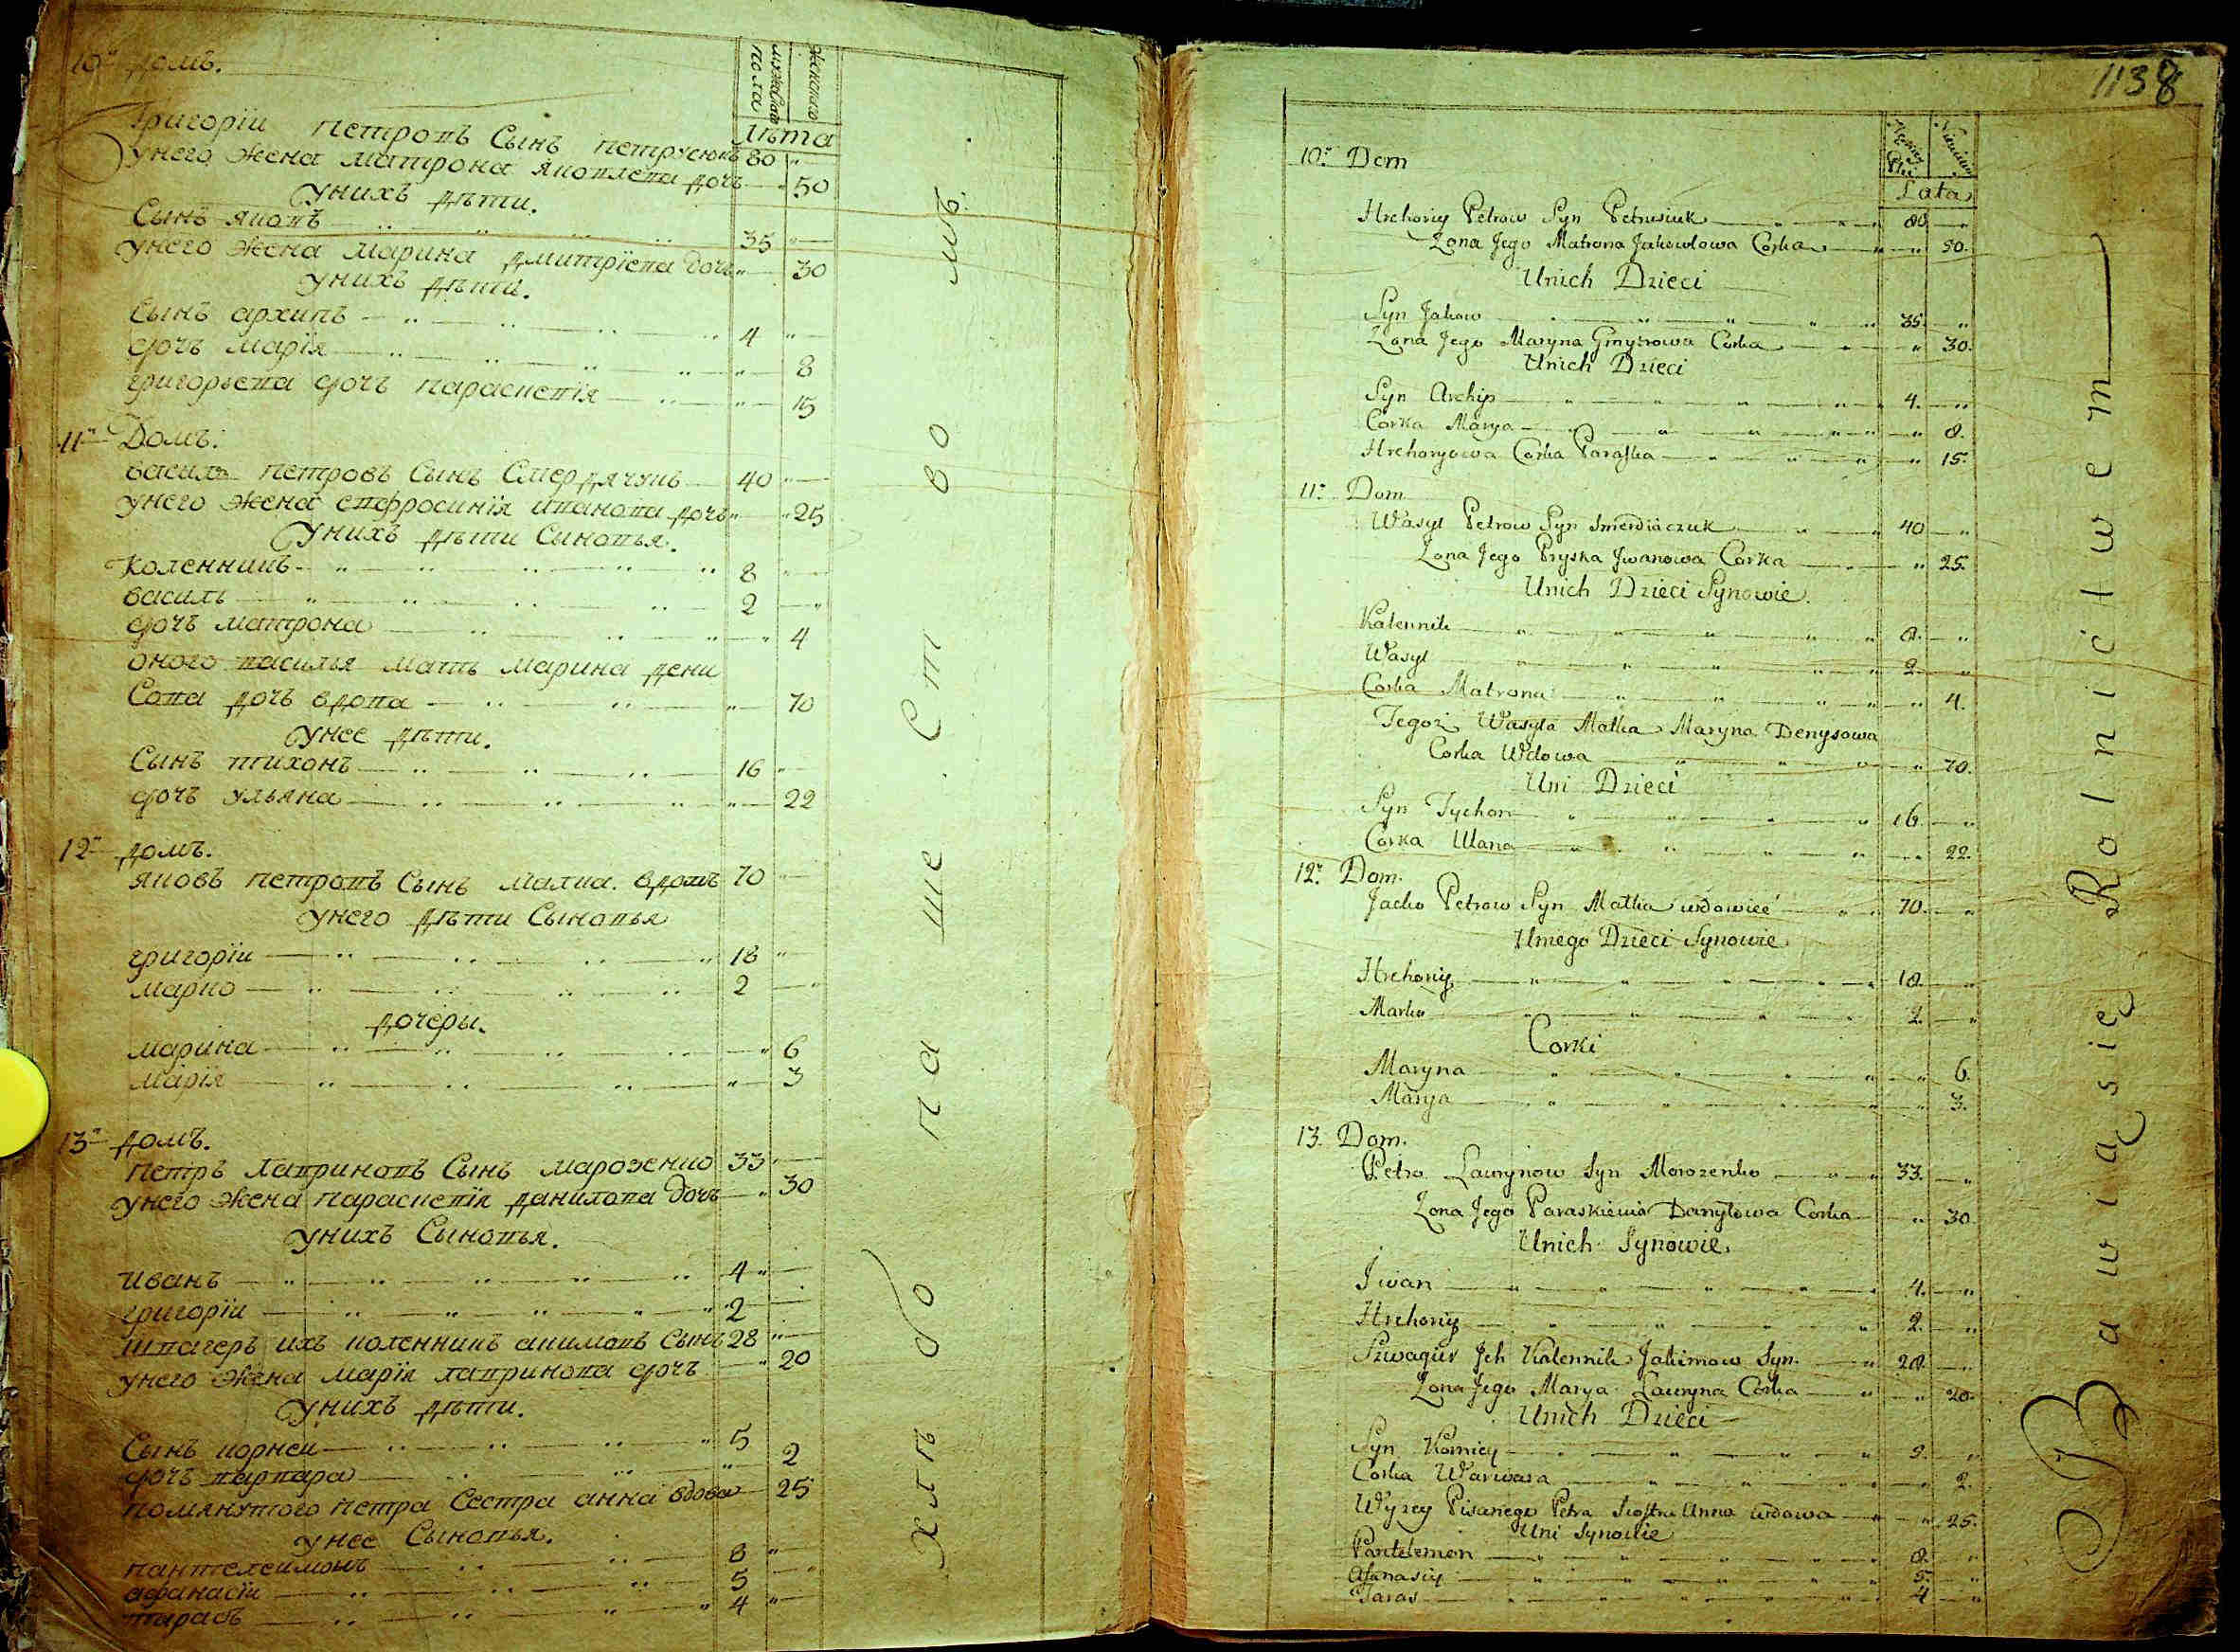 10й домъ.
мужеска пола
женска
лѣта
Григоріи петровъ Сынъ петрусюкъ 80 "
унего жена матрона яковлева дочь " 50
унихъ дѣти.
Сынъ яковъ 35 "
унего жена марина дмитрїева дочь " 30
унихъ дѣти.
Сынъ архипъ 4 "
дочь марїя " 8
григорьева дочь параскевїя " 15
11й Домъ.
василь петровъ Сынъ Смердячукъ 40 "
унего жена евфросинїя иванова дочь " 25
Унихъ дѣти Синовья.
коленникъ 8 "
василь 2 "
дочь матрона " 4
оного василья мать марина дени
Сова дочь вдова " 70
унее дѣти.
Сынъ тихонъ 16 "
дочь ульяна " 22
12й домъ.
яковъ петровъ Сынъ малка. вдовъ 70 "
унего дѣти Сыновья
григорїи 18 "
марко 2 "
дочеры.
марина " 6
марїя " 3
13й домъ.
петръ лавриновъ Сынъ марозенко 33 "
унего жена параскевїя данилова дочь " 30
унихъ Сыновья.
иванъ 4 "
григорїи 2 "
швагеръ ихъ коленникъ акимовъ Сынъ 28 "
унего жена марїя лавринова дочь " 20
унихъ дѣти.
Сынъ корнеи 5 "
дочь варвара " 2
помянутого петра Сестра анна вдова " 25
унее Сыновья.
пантелеимонъ 8 "
афанасїи 5 "
тарасъ 4 "
хлѣбопашеством.
1138
10. Dom
Lata
Hrehoriy Petrow Syn Petrusiuk " 80 "
Zona Jego Matrona Jakowlowa Corka " 50.
Unich Dzieci
Syn Jakow 35. "
Zona Jego Maryna Gmytrowa Corka " 30.
Unich Dzieci
Syn Archip 4. "
Corka Marya " 8.
Hrehoryowa Corka Paraska " 15.
11. Dom
Wasyl Petrow Syn Smerdiaczuk 40 "
Zona Jego Pryska Jwanowa Corka " 25.
Unich Dzieci Synowie.
Kalennik 8. "
Wasyl 2 "
Corka Matrona " 4.
Tegoż Wasyla Matka Maryna Denysowa
Corka Wdowa " 70.
Uni Dzieci
Syn Tychon 16. "
Corka Ulana " 22.
12. Dom.
Jacko Petrow Syn Malka wdowiec 70. "
Uniego Dzieci Synowie
Hrehoriy 18. "
Marko 2. "
Corki
Maryna " 6.
Marya " 3.
13. Dom.
Petro Lawrynow Syn Morozenko 33. "
Zona Jego Paraskiewia Danyłowa Corka " 30.
Unich Synowie.
Jwan 4. "
Hrehoriy 2. "
Szwagier Jch Kalennik Jakimow Syn. 28. "
Zona Jego Marya Lawryna Corka " 20.
Unich Dzieci
Syn Korniey 5. "
Corka Warwara " 2.
Wyzey Pisanego Petra Siostra Anna wdowa " 25.
Uni Synowie
Pantelemon 8. "
Afanasiy 5. "
Taras 4 "
Bawią się Rolnictwem